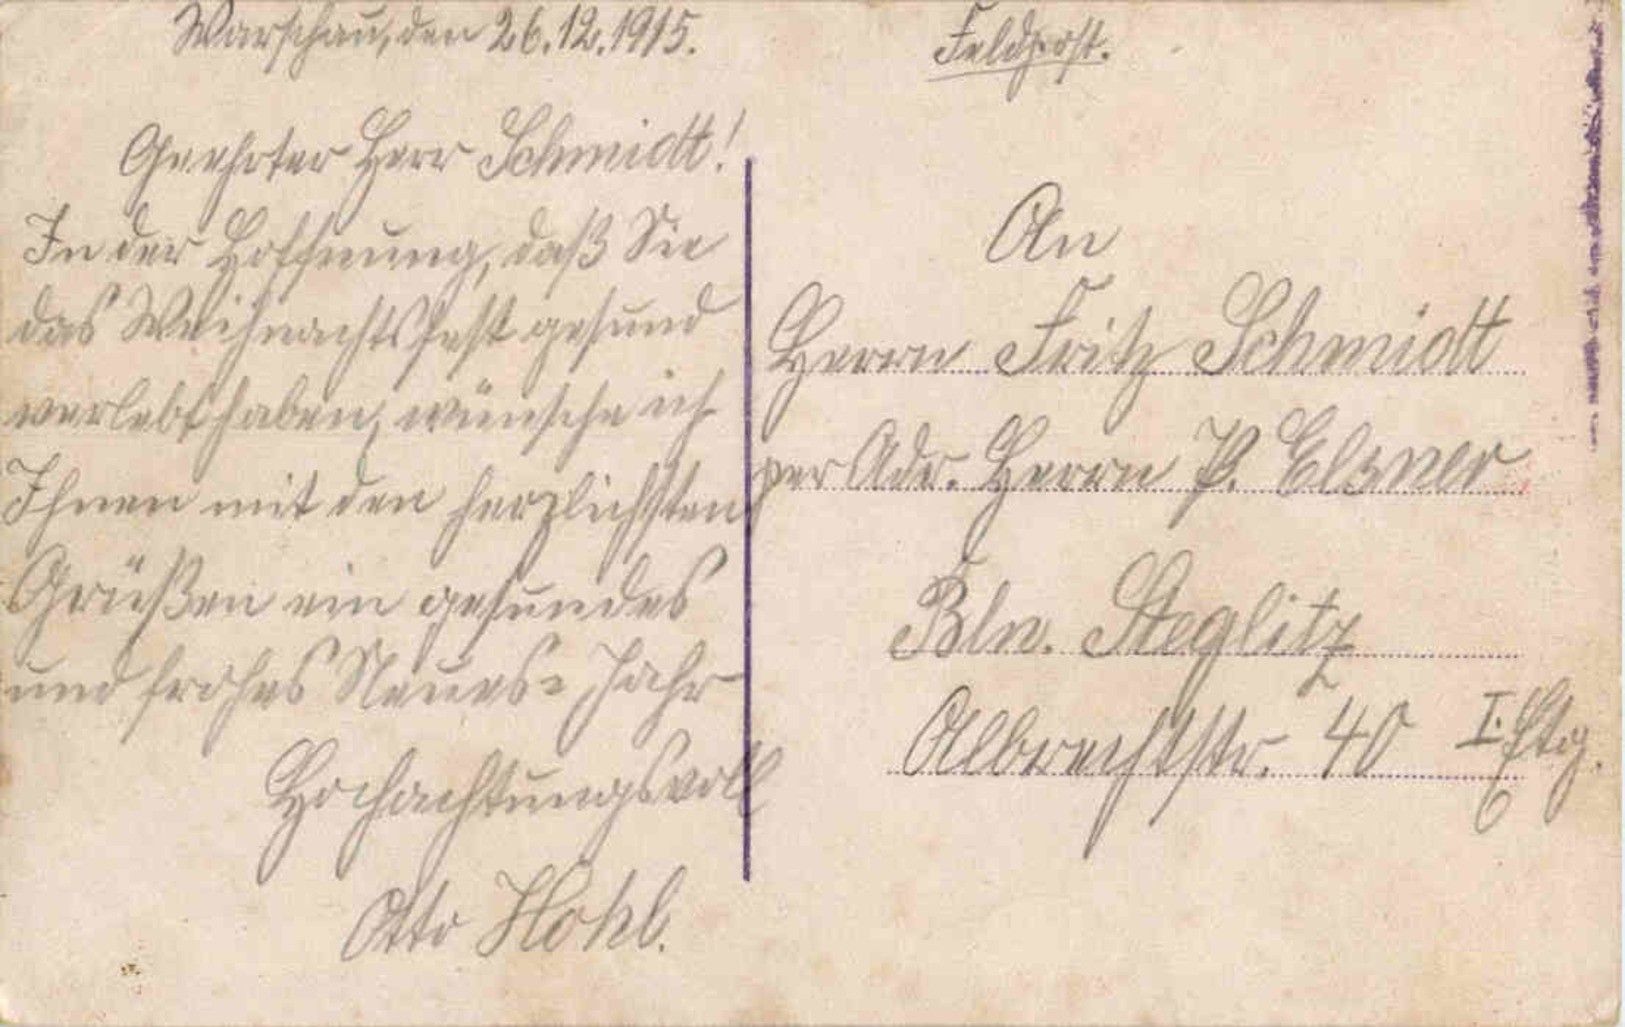 Warschau, den 26.12.1915.
Geehrter Herr Schmidt!
In der Hoffnung, daß Sie
das Weihnachtsfest gesund
verlebt haben, wünsche ich
Ihnen mit den herzlichsten
Grüßen ein gesundes
und frohes Neues-Jahr
Hochachtungsvoll
Otto
Feldpost.
An
Herrn Fritz Schmidt
per Adr. Herrn P. Elsner
Bln. Steglitz
Albrechtstr. 40 I. Etg.